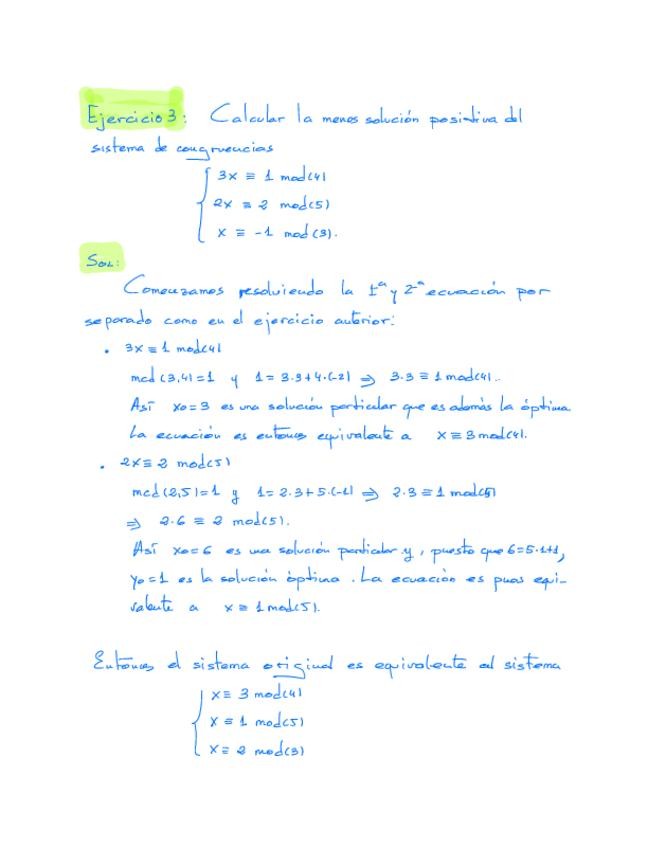 Ejercicio 3: Calcular la menos solución positiva del
sistema de congruencias
3x ≡ 1 mod(4)
2x ≡ 2 mod(5)
x ≡ -1 mod(3).
SOL:
Comenzamos resolviendo la 1ª y 2ª ecuación por
separado como en el ejercicio anterior:
• 3x ≡ 1 mod(4)
mcd(3,4)=1 y 1=3·3+4·(-2) ⇒ 3·3 ≡ 1 mod(4).
Así x0=3 es una solución particular que es además la óptima.
La ecuación es entonces equivalente a x ≡ 3 mod(4).
• 2x ≡ 2 mod(5)
mcd(2,5)=1 y 1=2·3+5·(-1) ⇒ 2·3 ≡ 1 mod(5)
⇒ 2·6 ≡ 2 mod(5).
Así x0=6 es una solución particular y, puesto que 6=5·1+1,
y0=1 es la solución óptima. La ecuación es pues equi-
valente a x ≡ 1 mod(5).
Entonces el sistema original es equivalente al sistema
x ≡ 3 mod(4)
x ≡ 1 mod(5)
x ≡ 2 mod(3)